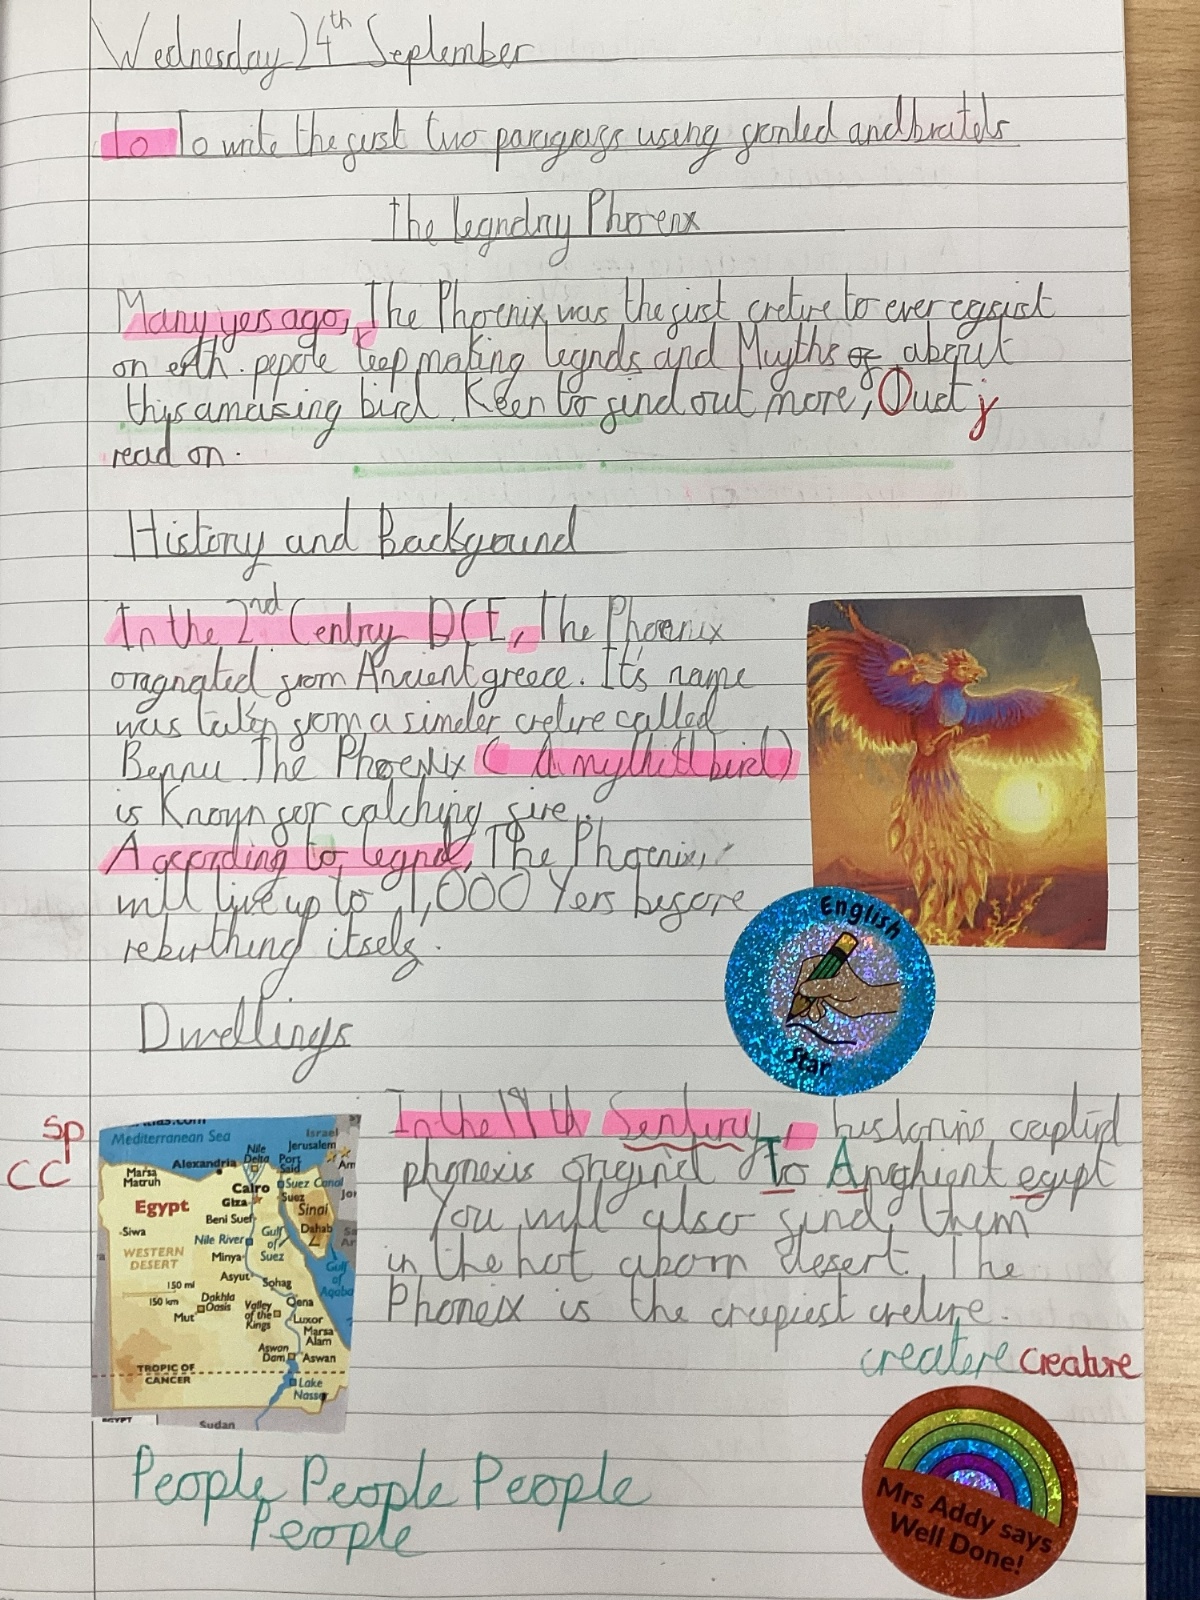 Wednesday 24th September
Lo To write the first two paragrass using fronted and brackets
The legndry Phoenx
Many yes ago, The Phoenix was the first creture to ever egsist
on erth. pepole keep making legnds and Myths of about
this amasing bird. Keen to find out more, Oust j
read on.
History and Background
In the 2nd Centry BCE, The Phoenix
oragnated from Ancient greece. It's name
was taken from a simaler creture called
Bennu. The Phoenix ( A mythicll bird)
is Known for catching fire.
According to legnd, The Phoenix,
will live up to 1,000 Yers before
rebirthing itself.
Dwellings
In the 19th Sentury, historins
phonexis To Anghient egypt
You will also find them
in the hot desert. The
Phoneix is the creepiest creture.
createre creature
sp
CC
People People People
People
English
Star
Mrs Addy says
Well Done!
Mediterranean Sea
Israel
Jerusalem
Nile
Delta
Port
Said
Alexandria
Marsa
Matruh
Suez Canal
Cairo
Giza
Suez
Egypt
Sinai
Beni Suef
Siwa
Nile River
Gulf
of
Suez
Dahab
WESTERN
DESERT
Minya
Gulf
of
Aqaba
Asyut
Sohag
150 mi
150 km
Dakhla
Oasis
Mut
Valley
of the
Kings
Qena
Luxor
Marsa
Alam
Aswan
Dam
Aswan
TROPIC OF
CANCER
Lake
Nasser
Sudan